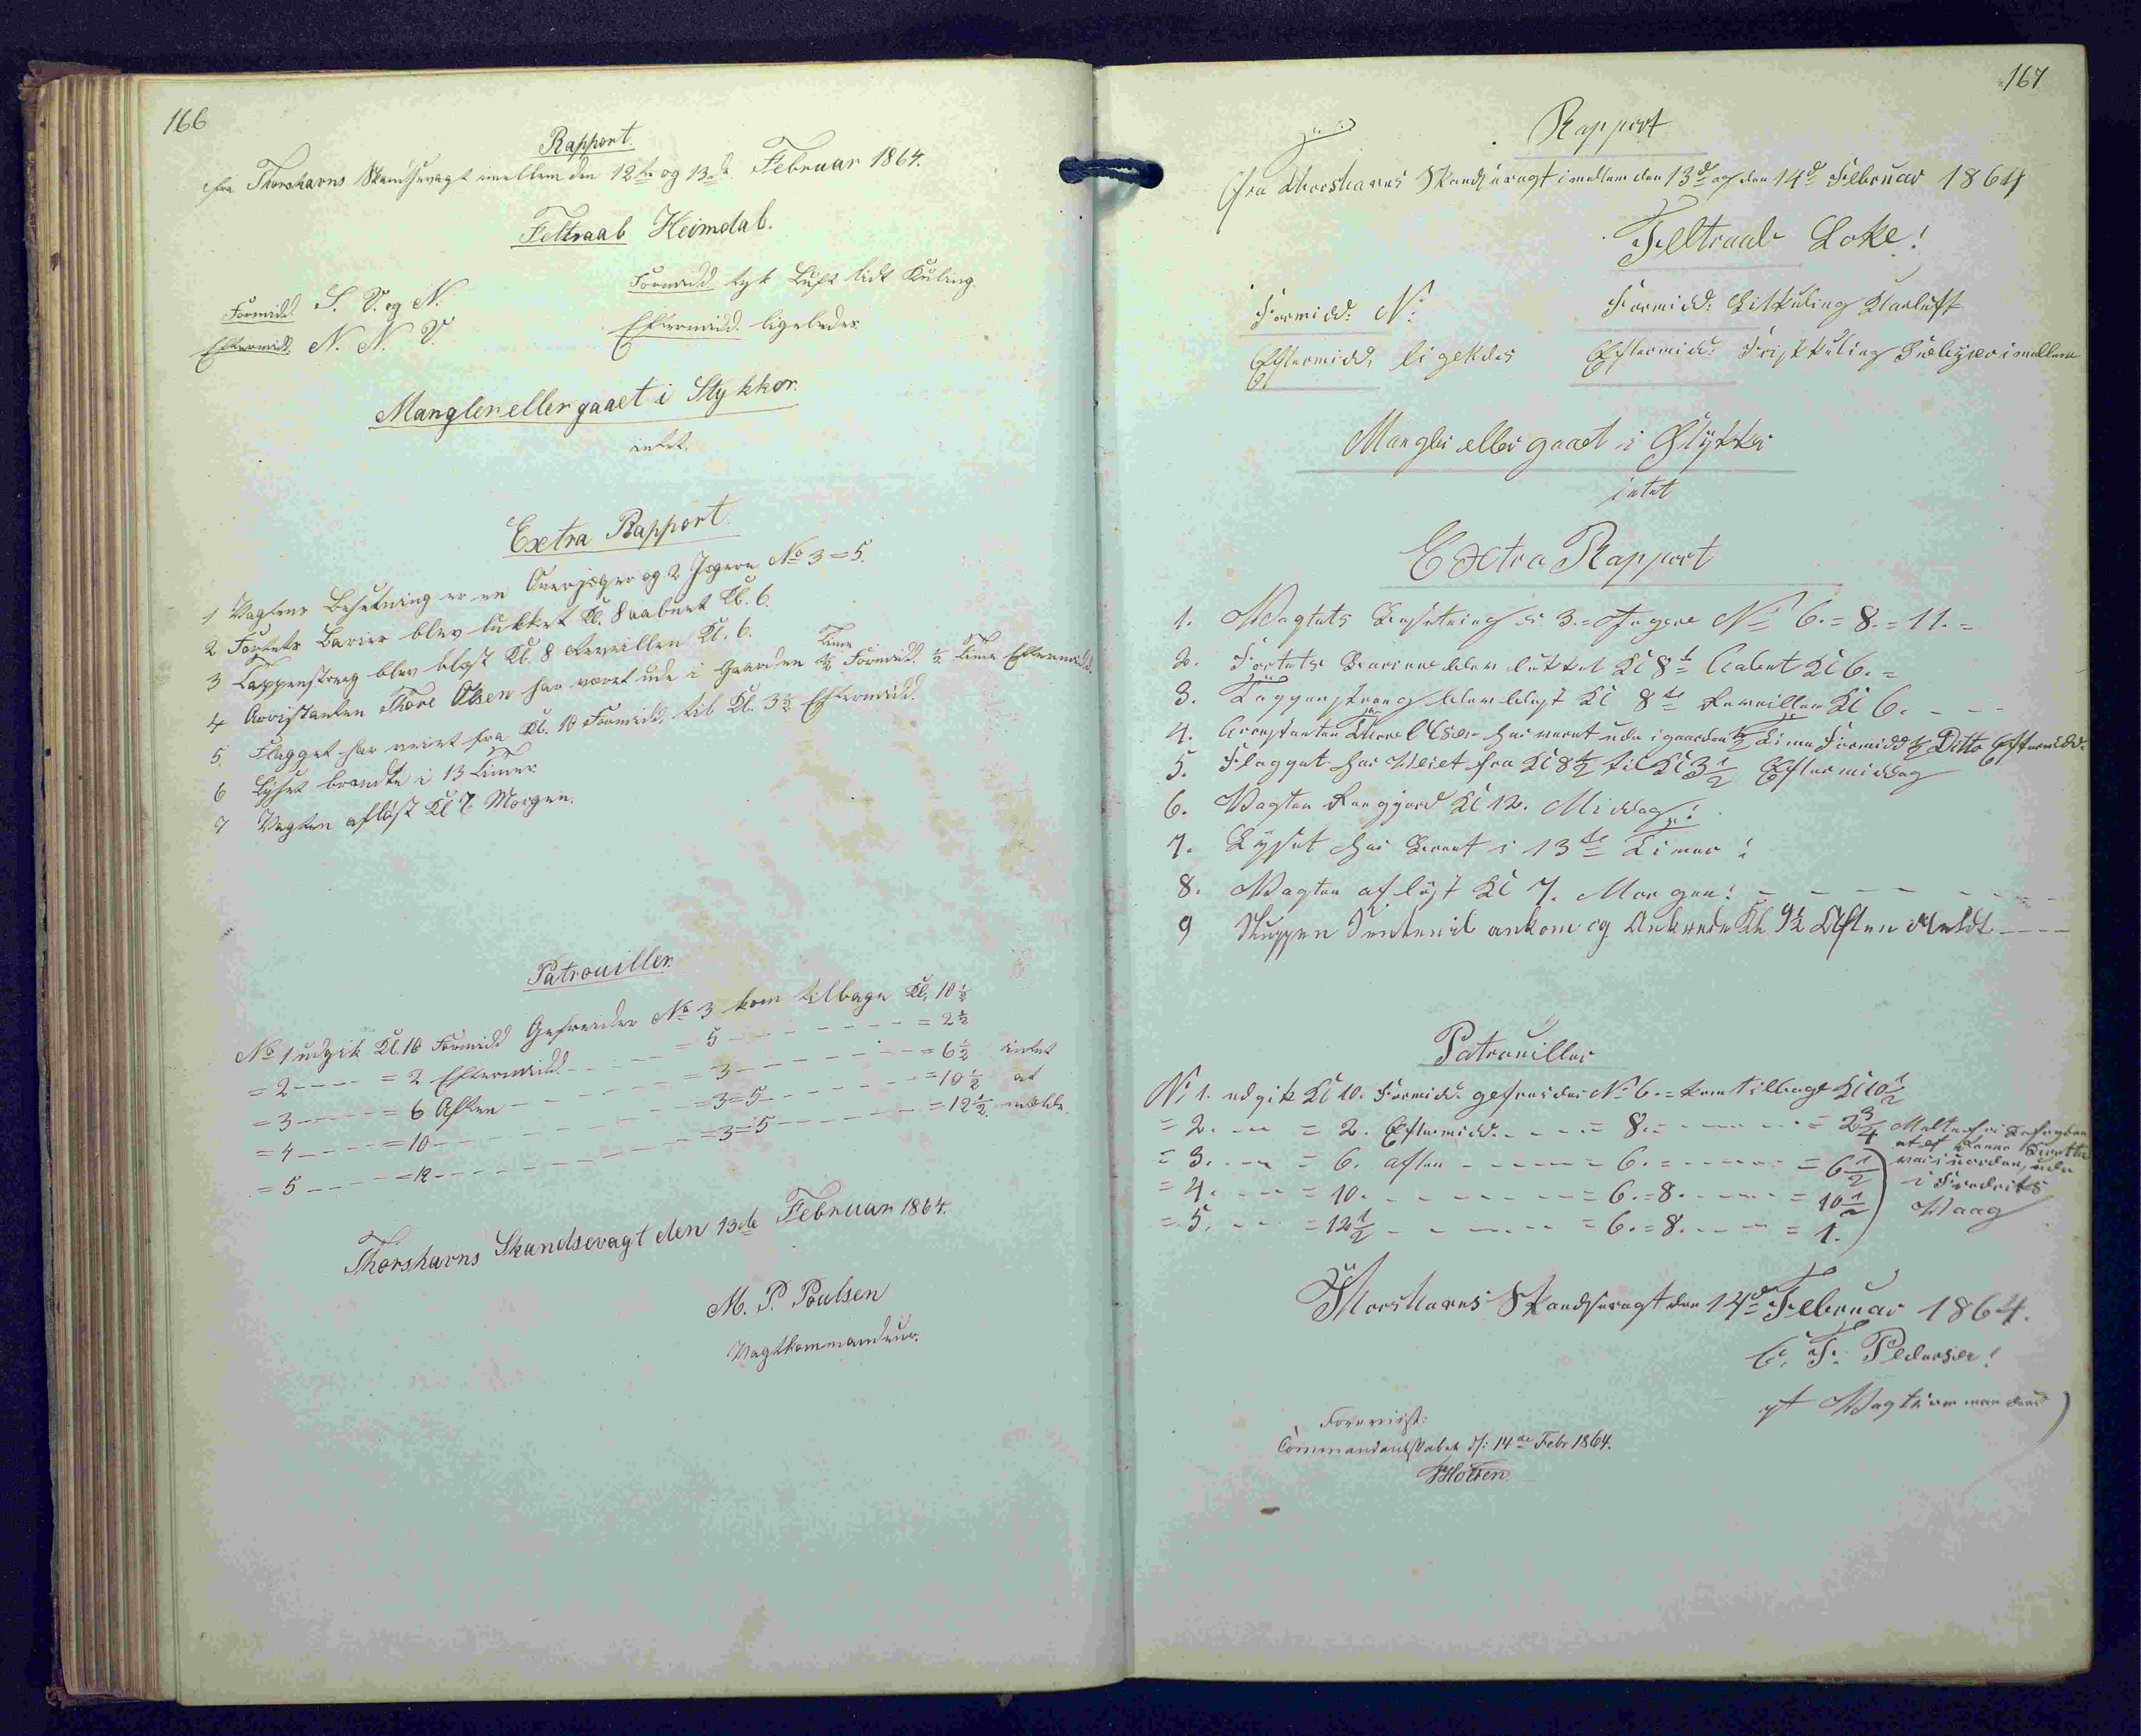 166
Rapport.
fra Thorshavns Skandsevagt imellem den 12te og 13de Februar 1864.
Feltraab Heimdal.
Formidd S. V. og N. Formidd tyk Luft lidt Kuling.
Eftermidd. N. N. V. Eftermidd. ligeledes
Mangler eller gaaet i Stykker.
intet.
Extra Rapport.
1 Vagtens Besætning er en Overjæger og 2 Jægere No 3 = 5.
2 Fortets Barier blev lukket Kl. 8 aabnet Kl. 6.
3 Tappenstreg blev blæst Kl. 8 Reveillen Kl. 6.
4 Arristanten Thore Olsen har været ude i Gaarden ½ Time Formidd. ½ Time Eftermidd.
5. Flagget har veiet fra Kl. 10 Formidd. til Kl. 3½ Eftermidd.
6 Lyset brændte i 13 Timer
7 Vagten afløst Kl 7 Morgen.
Patrouiller.
No 1 udgik Kl. 10 Formidd Gefreider No 3 kom tilbage Kl. 10½
= 2 ---- = 2 Eftermidd. ---- = 5 ---- = 2½
= 3 ---- = 6 Aften ---- = 3 ---- = 6½ intet
= 4 ---- = 10 ---- = 3 = 5 ---- = 10½ at
= 5 ---- = 12 ---- = 3 = 5 ---- = 12½ melde.
Thorshavns Skandsevagt den 13de Februar 1864.
M. P. Poulsen
Vagtkommandeur.
167
Rapport
fra Thorshavns Skandsevagt imellem den 13de og den 14de Februar 1864
Feltraab Loke!
Formidd: N: Formidd: Lidt Kuling Klarluft
Eftermidd, ligeledes Eftermidd: Frisk Kuling Sneebyer imellem
Mangler eller gaaet i Stykker
intet
Extra Rapport
1. Wagtets Besætning er 3. Jægere No 6. = 8. = 11. =
2. Fortets Bariere blev lukket Kl 8 t Aabent Kl 6. =
3. Tappenstreeg blev blæst Kl 8 te Reveillen Kl 6. - - -
4. Arrestanten Thore Olsen har været ude i gaarden ½ Time Formidd ½ Ditto Eftermidd.
5. Flagget har Veiet fra Kl 8½ til Kl 3½ Eftermiddag
6. Vagten Rengjord Kl 12. Middag!
7. Lysset har Brænt i 13 de Timer!
8. Wagten afløst Kl 7. Morgen! - - - -
9 Skuppen ankom og Ankrede Kl. 9½ Aften Meldt ----
Patrouiller
No 1. udgik Kl 10. Formidd. gefreider No 6. = kom tilbage Kl 10½
= 2. --- = 2. Eftermidd. ---- = 8. = ---- = 2¾
= 3. --- = 6. aften ---- = 6. = ---- = 6½
= 4. --- = 10. ---- = 6. = 8. ---- = 10½
= 5. --- = 12½ ---- = 6. = 8. ---- = 1.
i Waag
Thorshavns Skandsevagt den 14de Februar 1864.
C. F. Pedersen!
pt Wagtkommandeur
Foreviist:
Commandantskabet d/: 14de Febr 1864.